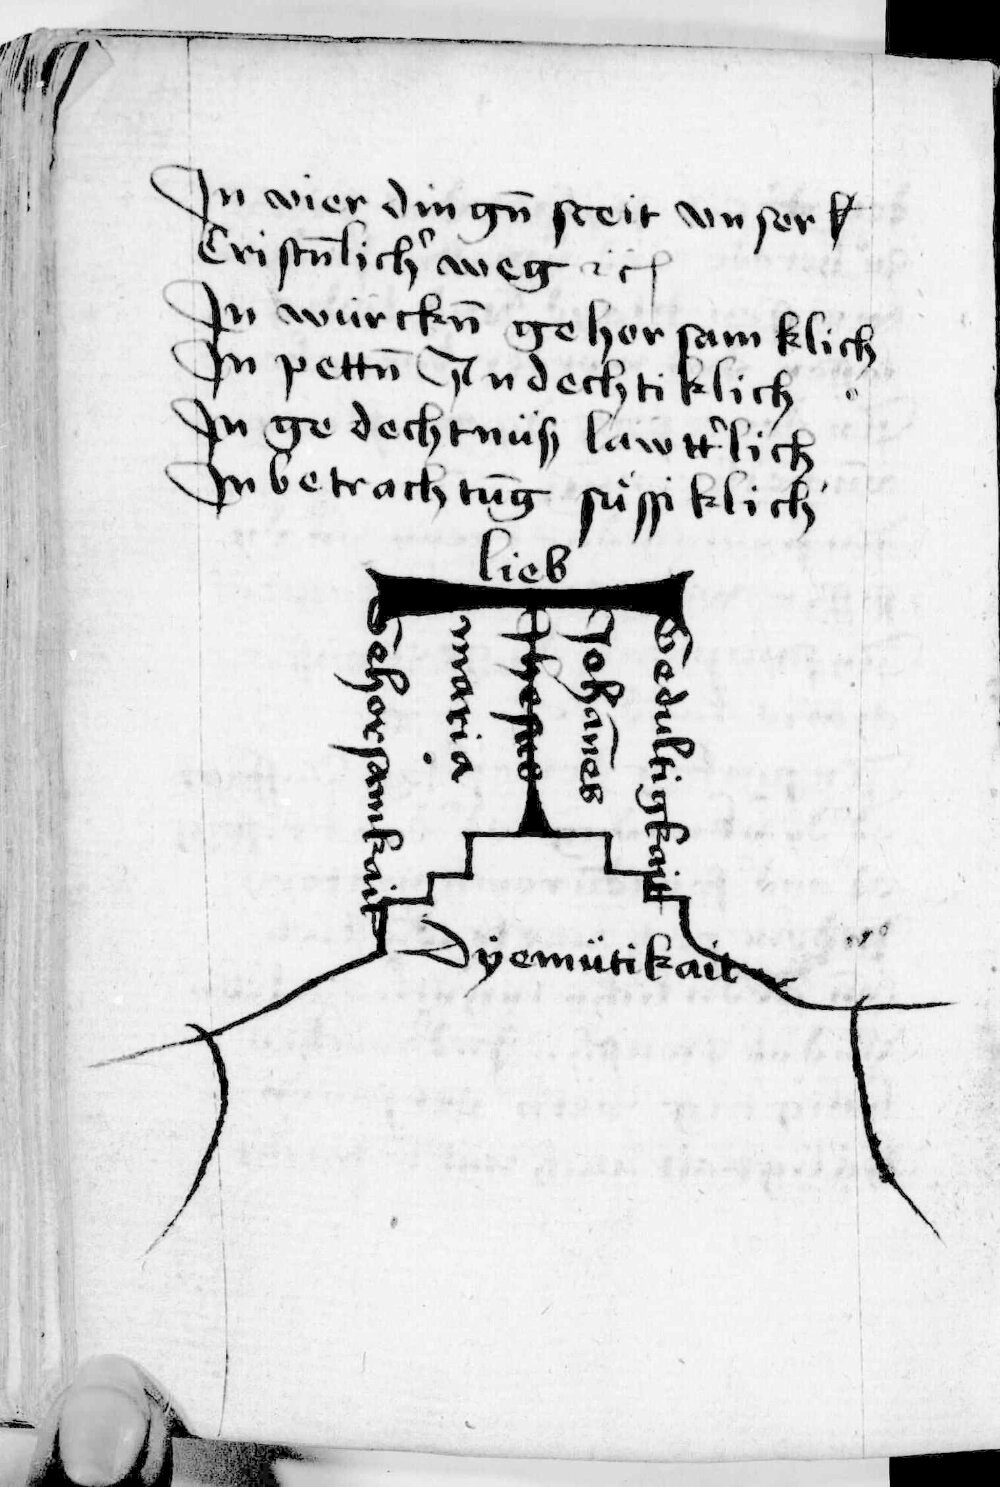 In vier dingn̄ steit vnser
Cristn̄lichʾ weg ⁊c
In würckn̄ gehorsamklich
In pettn̄ Andechtiklich
In gedechtnüß lawttʾlich
In betrachtūg süssiklich
lieb
Gehorsamkait
maria
Jhesus
Johān̄es
Gedultigkait
Dÿemütikait